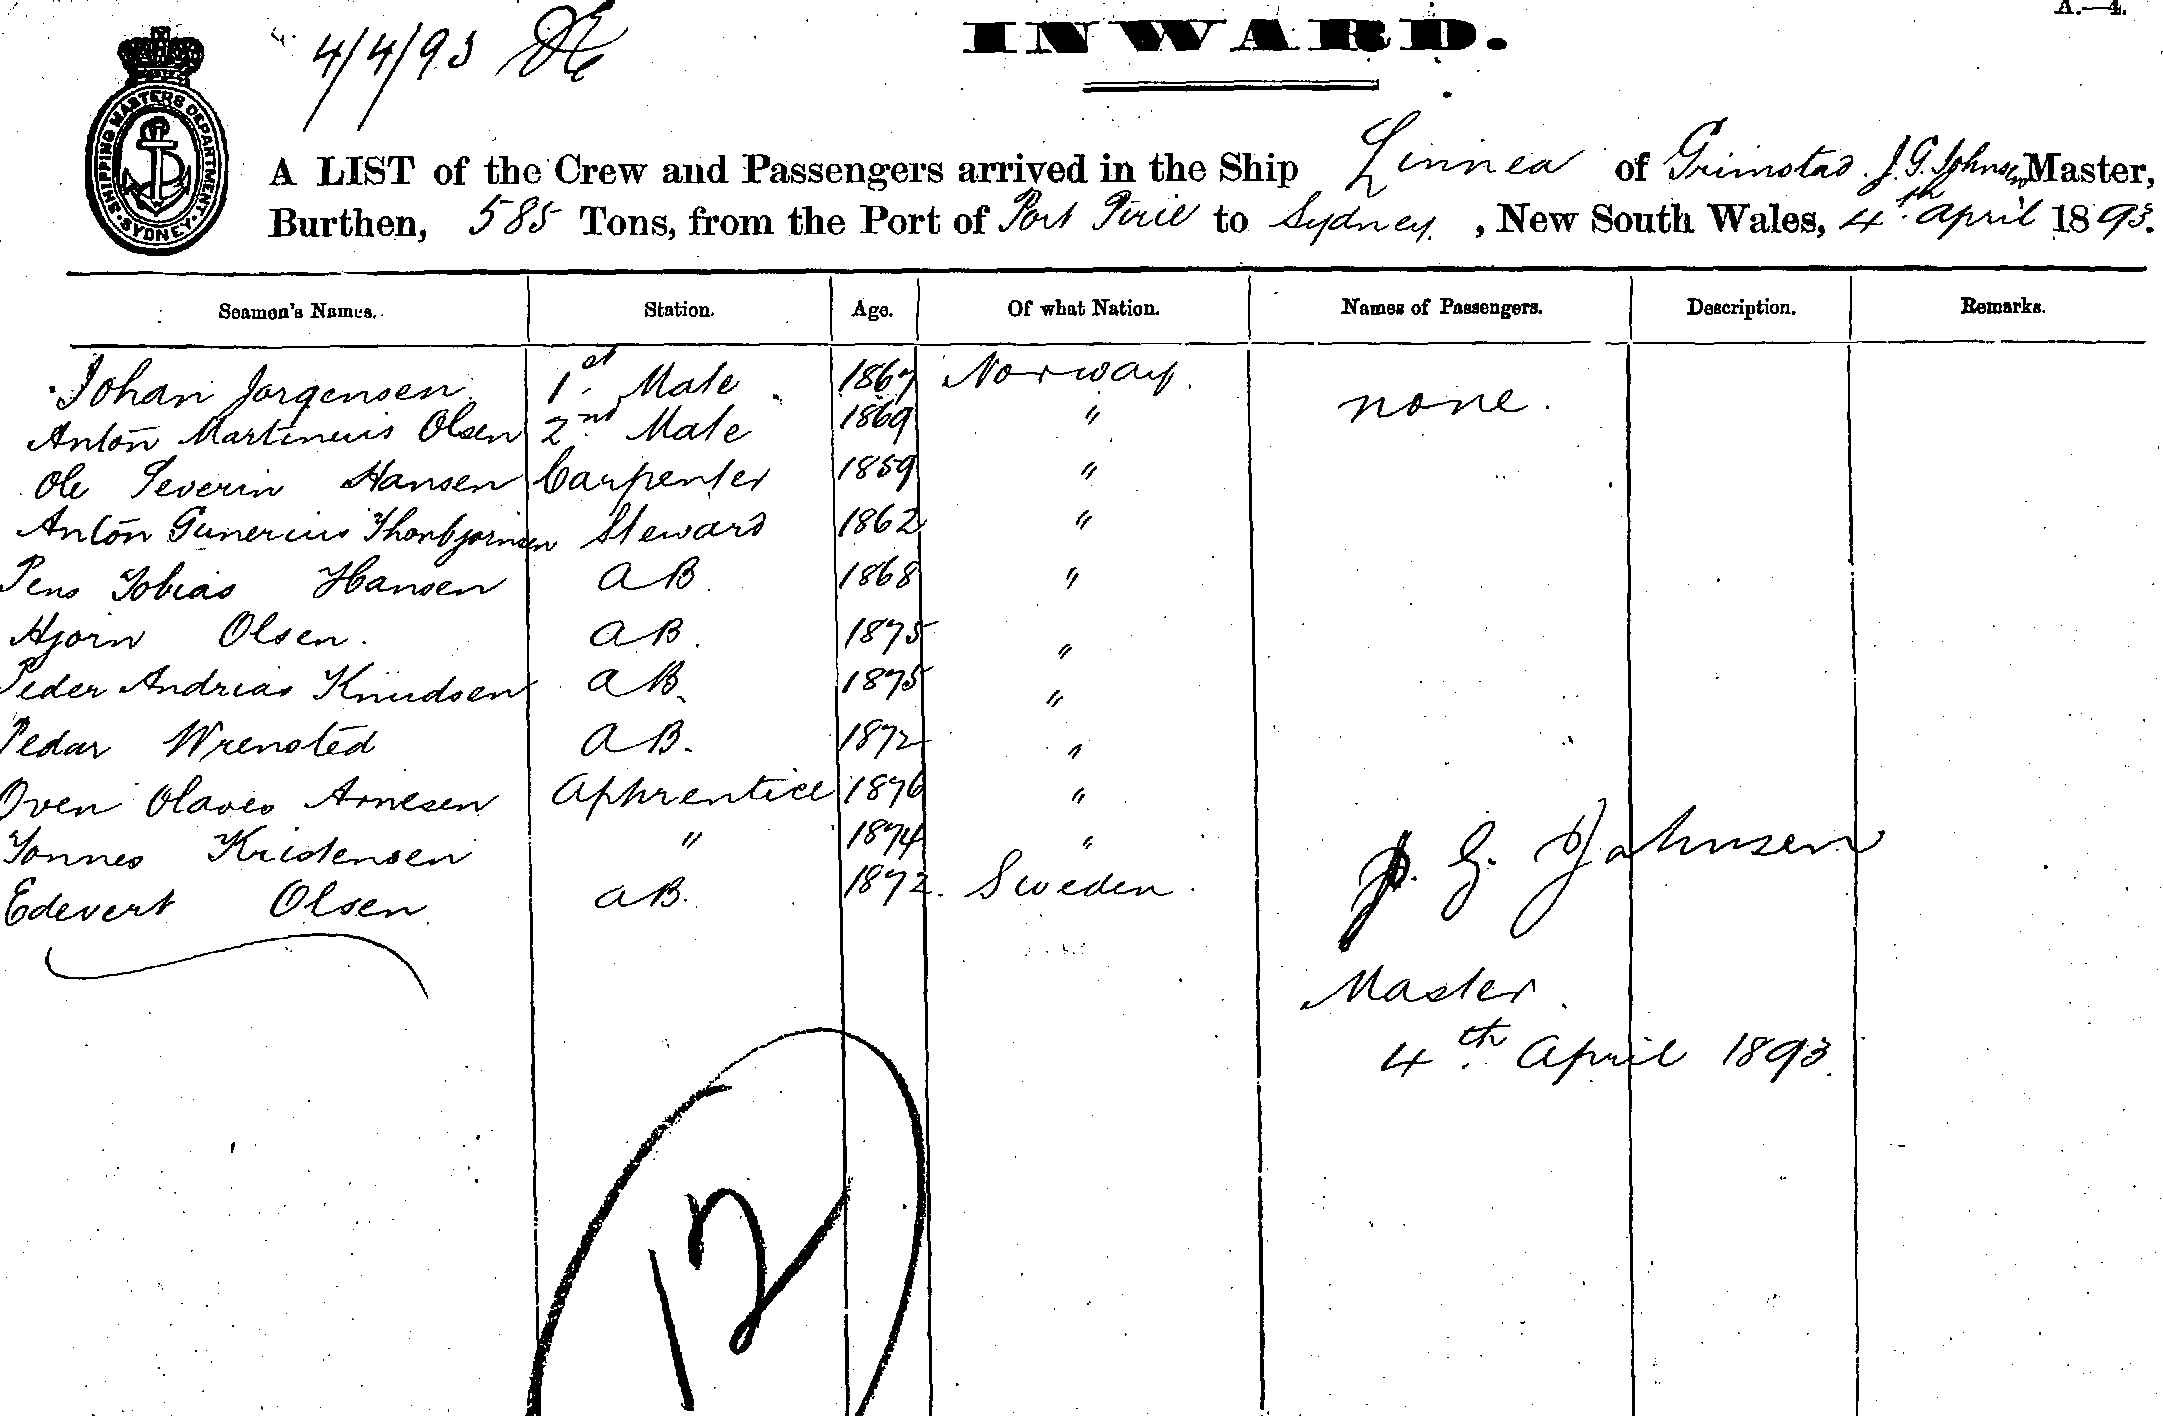 A.—4.
4/4/93
INWARD.
SHIPPING MASTERS DEPARTMENT SYDNEY
A LIST of the Crew and Passengers arrived in the Ship Linnea of Grimstad. J. G. Johnsen Master,
Burthen, 585 Tons, from the Port of Port Pirie to Sydney. , New South Wales, 4th April 1893.
Seamen's Names. Station. Age. Of what Nation. Names of Passengers. Description. Remarks.
Johan Jorgensen 1st Mate 1867 Norway. none.
Anton Martinius Olsen 2nd Mate 1869 "
Ole Severin Hansen Carpenter 1859 "
Anton Gunerius Thorbjornsen Steward 1862 "
Jens Tobias Hansen AB. 1868 "
Hjorn Olsen. AB. 1875 "
Peder Andrias Knudsen AB. 1875 "
Pedar Wrensted AB. 1872 "
Oven Olaves Arnesen Aphrentice 1876 "
Tonnes Kristensen " 1874 "
Edevert Olsen. AB. 1872. Sweden.
J. G. Johnsen
Master.
4th April 1893.
12